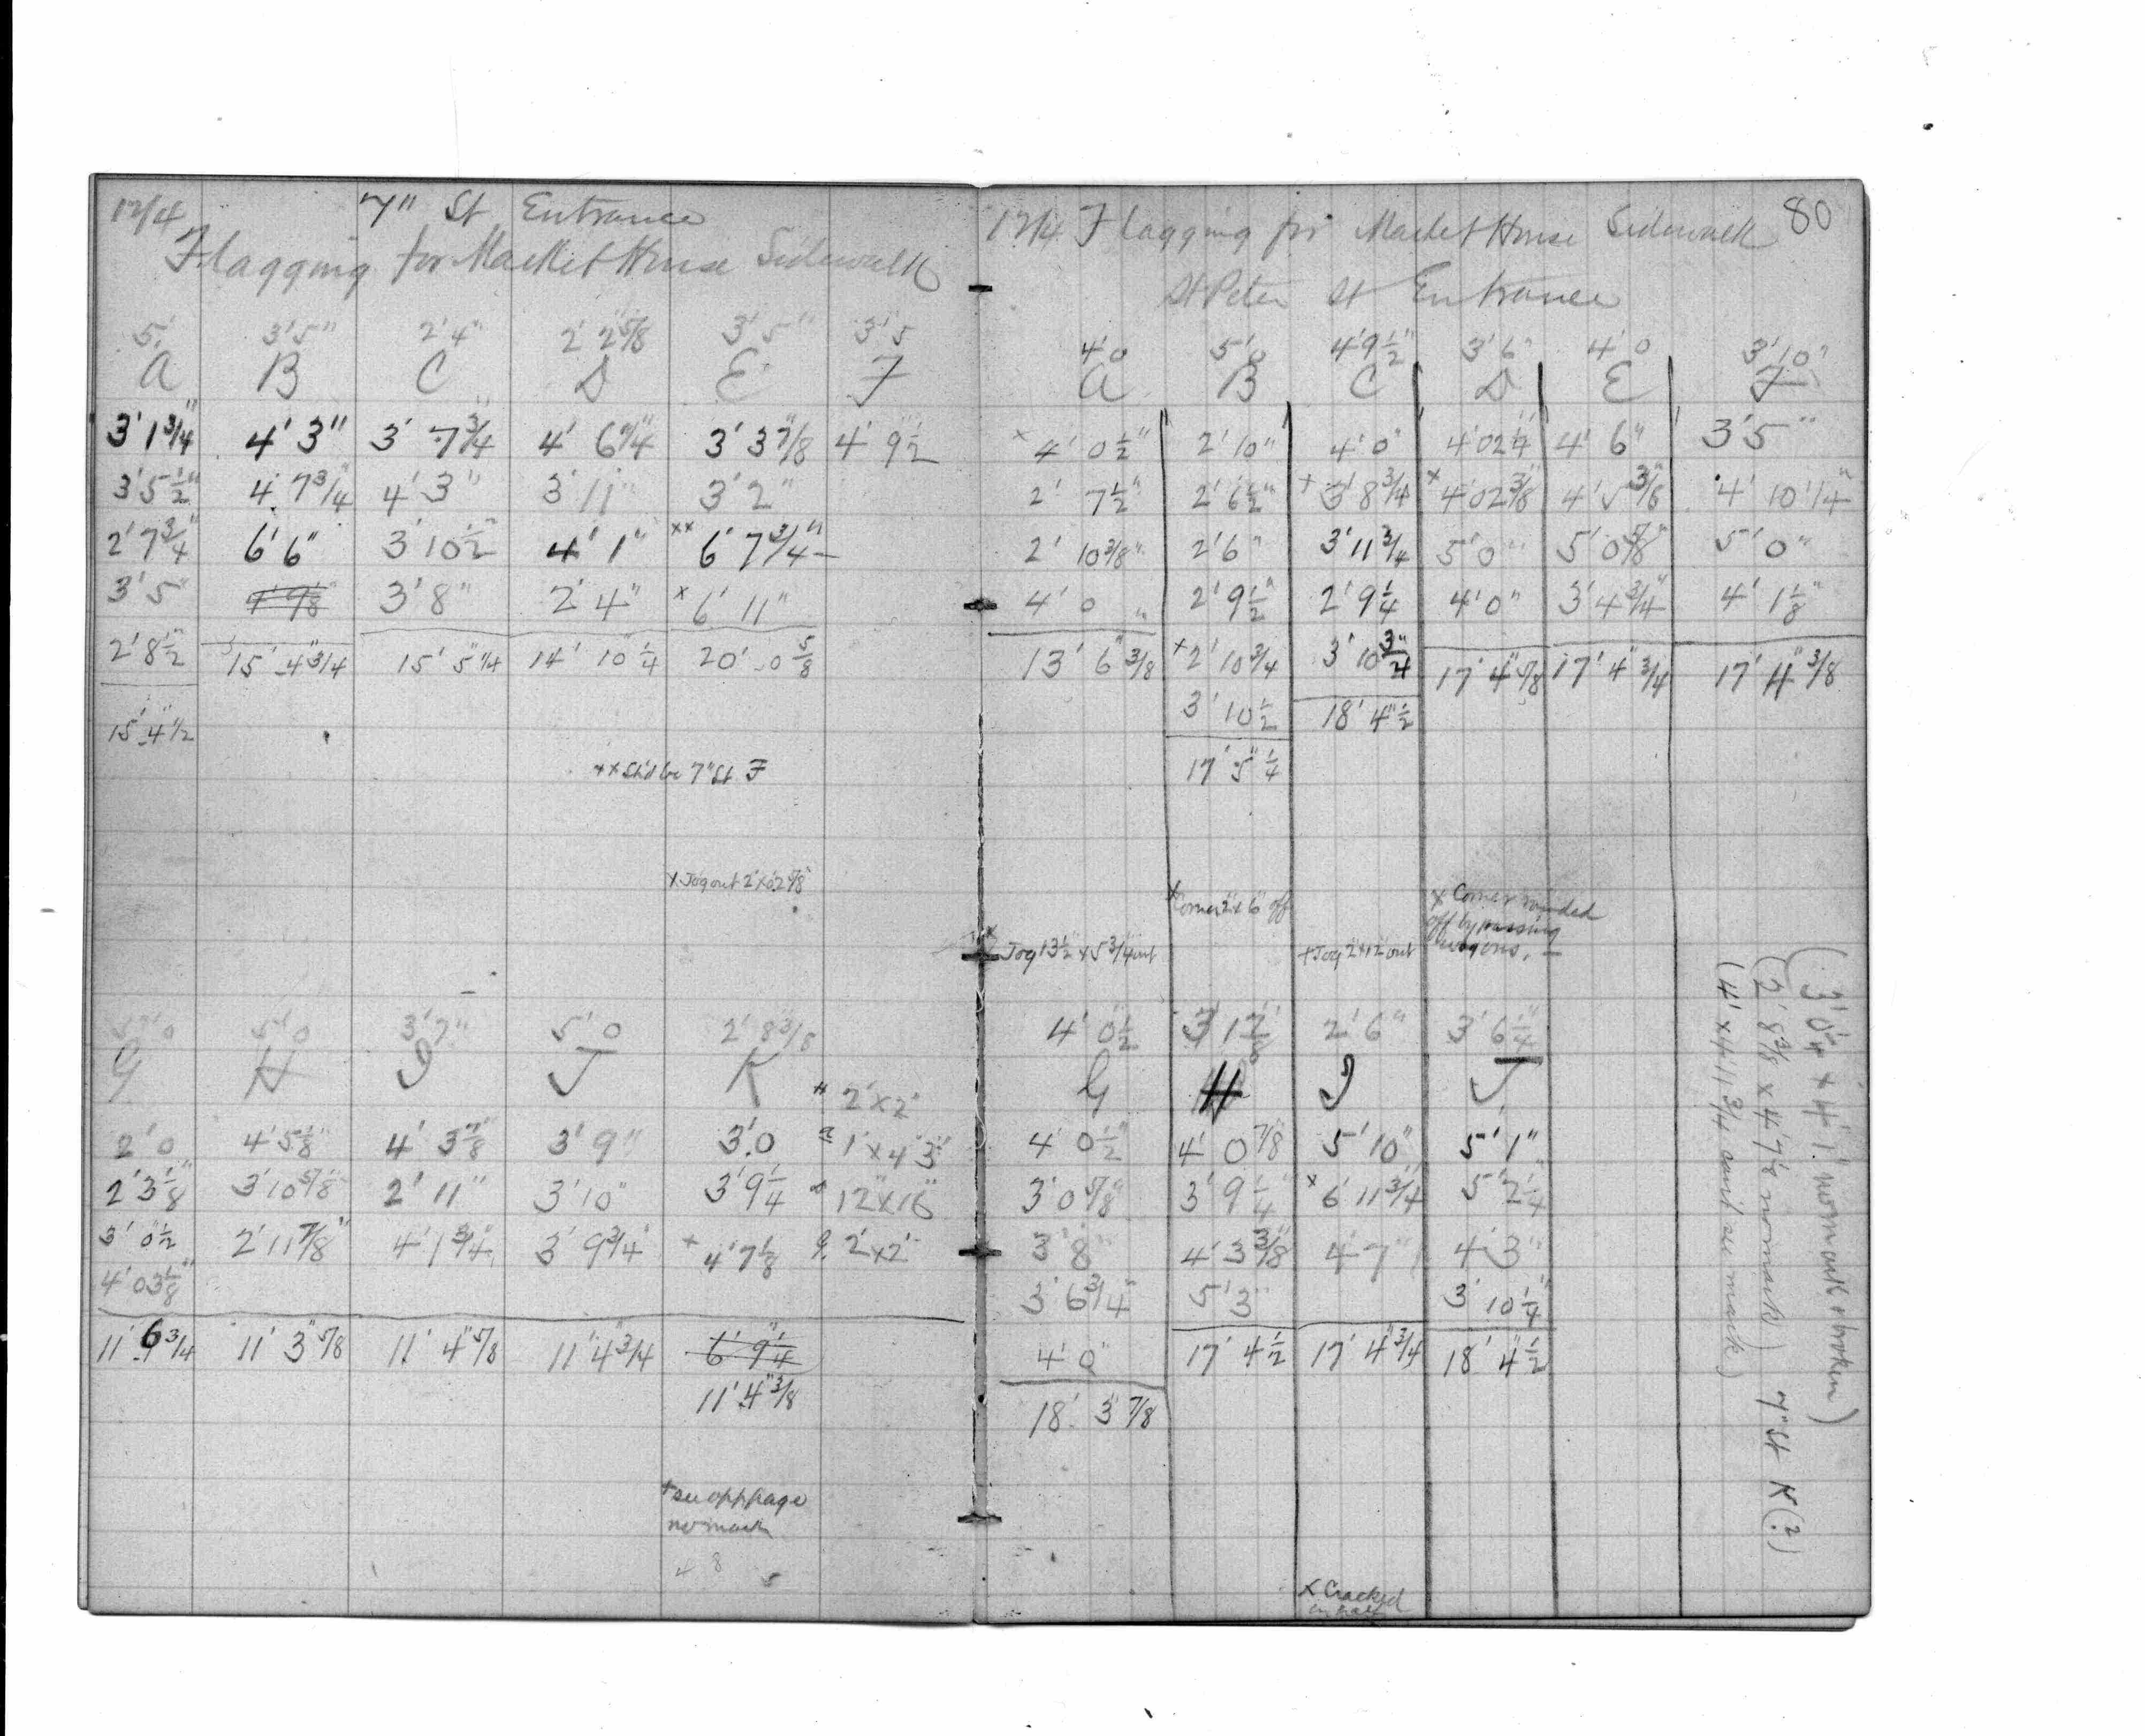 12/4 7" St Entrance
Flagging for Market House Sidewalk
5' 3' 5" 2' 4" 2' 2 5/8 3' 5" 3' 5
A B C D E F
3' 1 3/4" 4' 3" 3' 7 3/4" 4' 6 1/4" 3' 3 7/8" 4' 9 1/2"
3' 5 1/2" 4' 7 3/4" 4' 3" 3' 11" 3' 2"
2' 7 3/4" 6' 6" 3' 10 1/2" 4' 1" xx 6' 7 3/4"
3' 5" 3' 8" 2' 4" x 6' 11"
2' 8 1/2" 15' 4" 3/4 15' 5" 1/4 14' 10" 1/4 20' 0 5/8
15' 4" 1/2
xx Sh'd be 7" St F
x Jog out 2' x 02 7/8"
5' 0 5' 0 3' 7" 5' 0 2' 8 3/8
G H I J K
2' x 2'
2' 0 4' 5 1/8" 4' 3 7/8" 3' 9" 3' 0 1' x 4' 3"
2' 3 1/8" 3' 10 5/8" 2' 11" 3' 10" 3' 9 1/4 12" x 16"
3' 0 1/2" 2' 11 7/8" 4' 1 3/4" 3' 9 3/4" + 4' 7 1/8 2' x 2'
4' 03 1/8"
11' 6 3/4 11' 3" 5/8 11' 4" 5/8 11' 4" 3/4 6' 9 1/4"
11' 4" 3/8
+ see opp page
no mark
12/4 Flagging for Market House Sidewalk 80
St Peter St Entrance
4' 0 5' 0 4' 9 1/2" 3' 6" 4' 0 3' 10"
A B C D E F
x 4' 0 1/2" 2' 10" 4' 0" 4' 02 1/4" 4' 6" 3' 5"
2' 7 1/2" 2' 6 1/2" + 3' 8 3/4 x 4' 02 3/8" 4' 5 3/8" 4' 10 1/4"
2' 10 3/8" 2' 6" 3' 11 3/4 5' 0" 5' 0 5/8" 5' 0"
4' 0" 2' 9 1/2" 2' 9 1/4 4' 0" 3' 4 3/4" 4' 1 1/8"
13' 6" 3/8 x 2' 10 3/4 3' 10 3/4" 17' 4" 5/8 17' 4" 3/4 17' 4" 3/8
3' 10 1/2 18' 4" 1/2
17' 5" 1/4
x Corner 2" x 6" off
x Corner rounded
off by passing
wagons.
x Jog 13 1/2" x 5 3/4 out
+ Jog 2" x 12" out
4' 0 1/2 3' 1 7/8 2' 6" 3' 6 1/4"
G H I J
4' 0 1/2" 4' 0 7/8 5' 10" 5' 1"
3' 0 5/8" 3' 9 1/4" x 6' 11 3/4 5' 2 1/4"
3' 8" 4' 3 3/8" 4' 7" 4' 3"
3' 6 3/4" 5' 3" 3' 10 1/4"
4' 0" 17' 4 1/2 17' 4" 3/4 18' 4" 1/2
18' 3" 7/8
x Cracked
in half
(3' 0 1/4" x 4' 1" worn out & broken)
(2' 8 3/8 x 4' 7 1/8 no mark) 7" St K (?)
(4' x 4' 11 3/4 can't see mark)